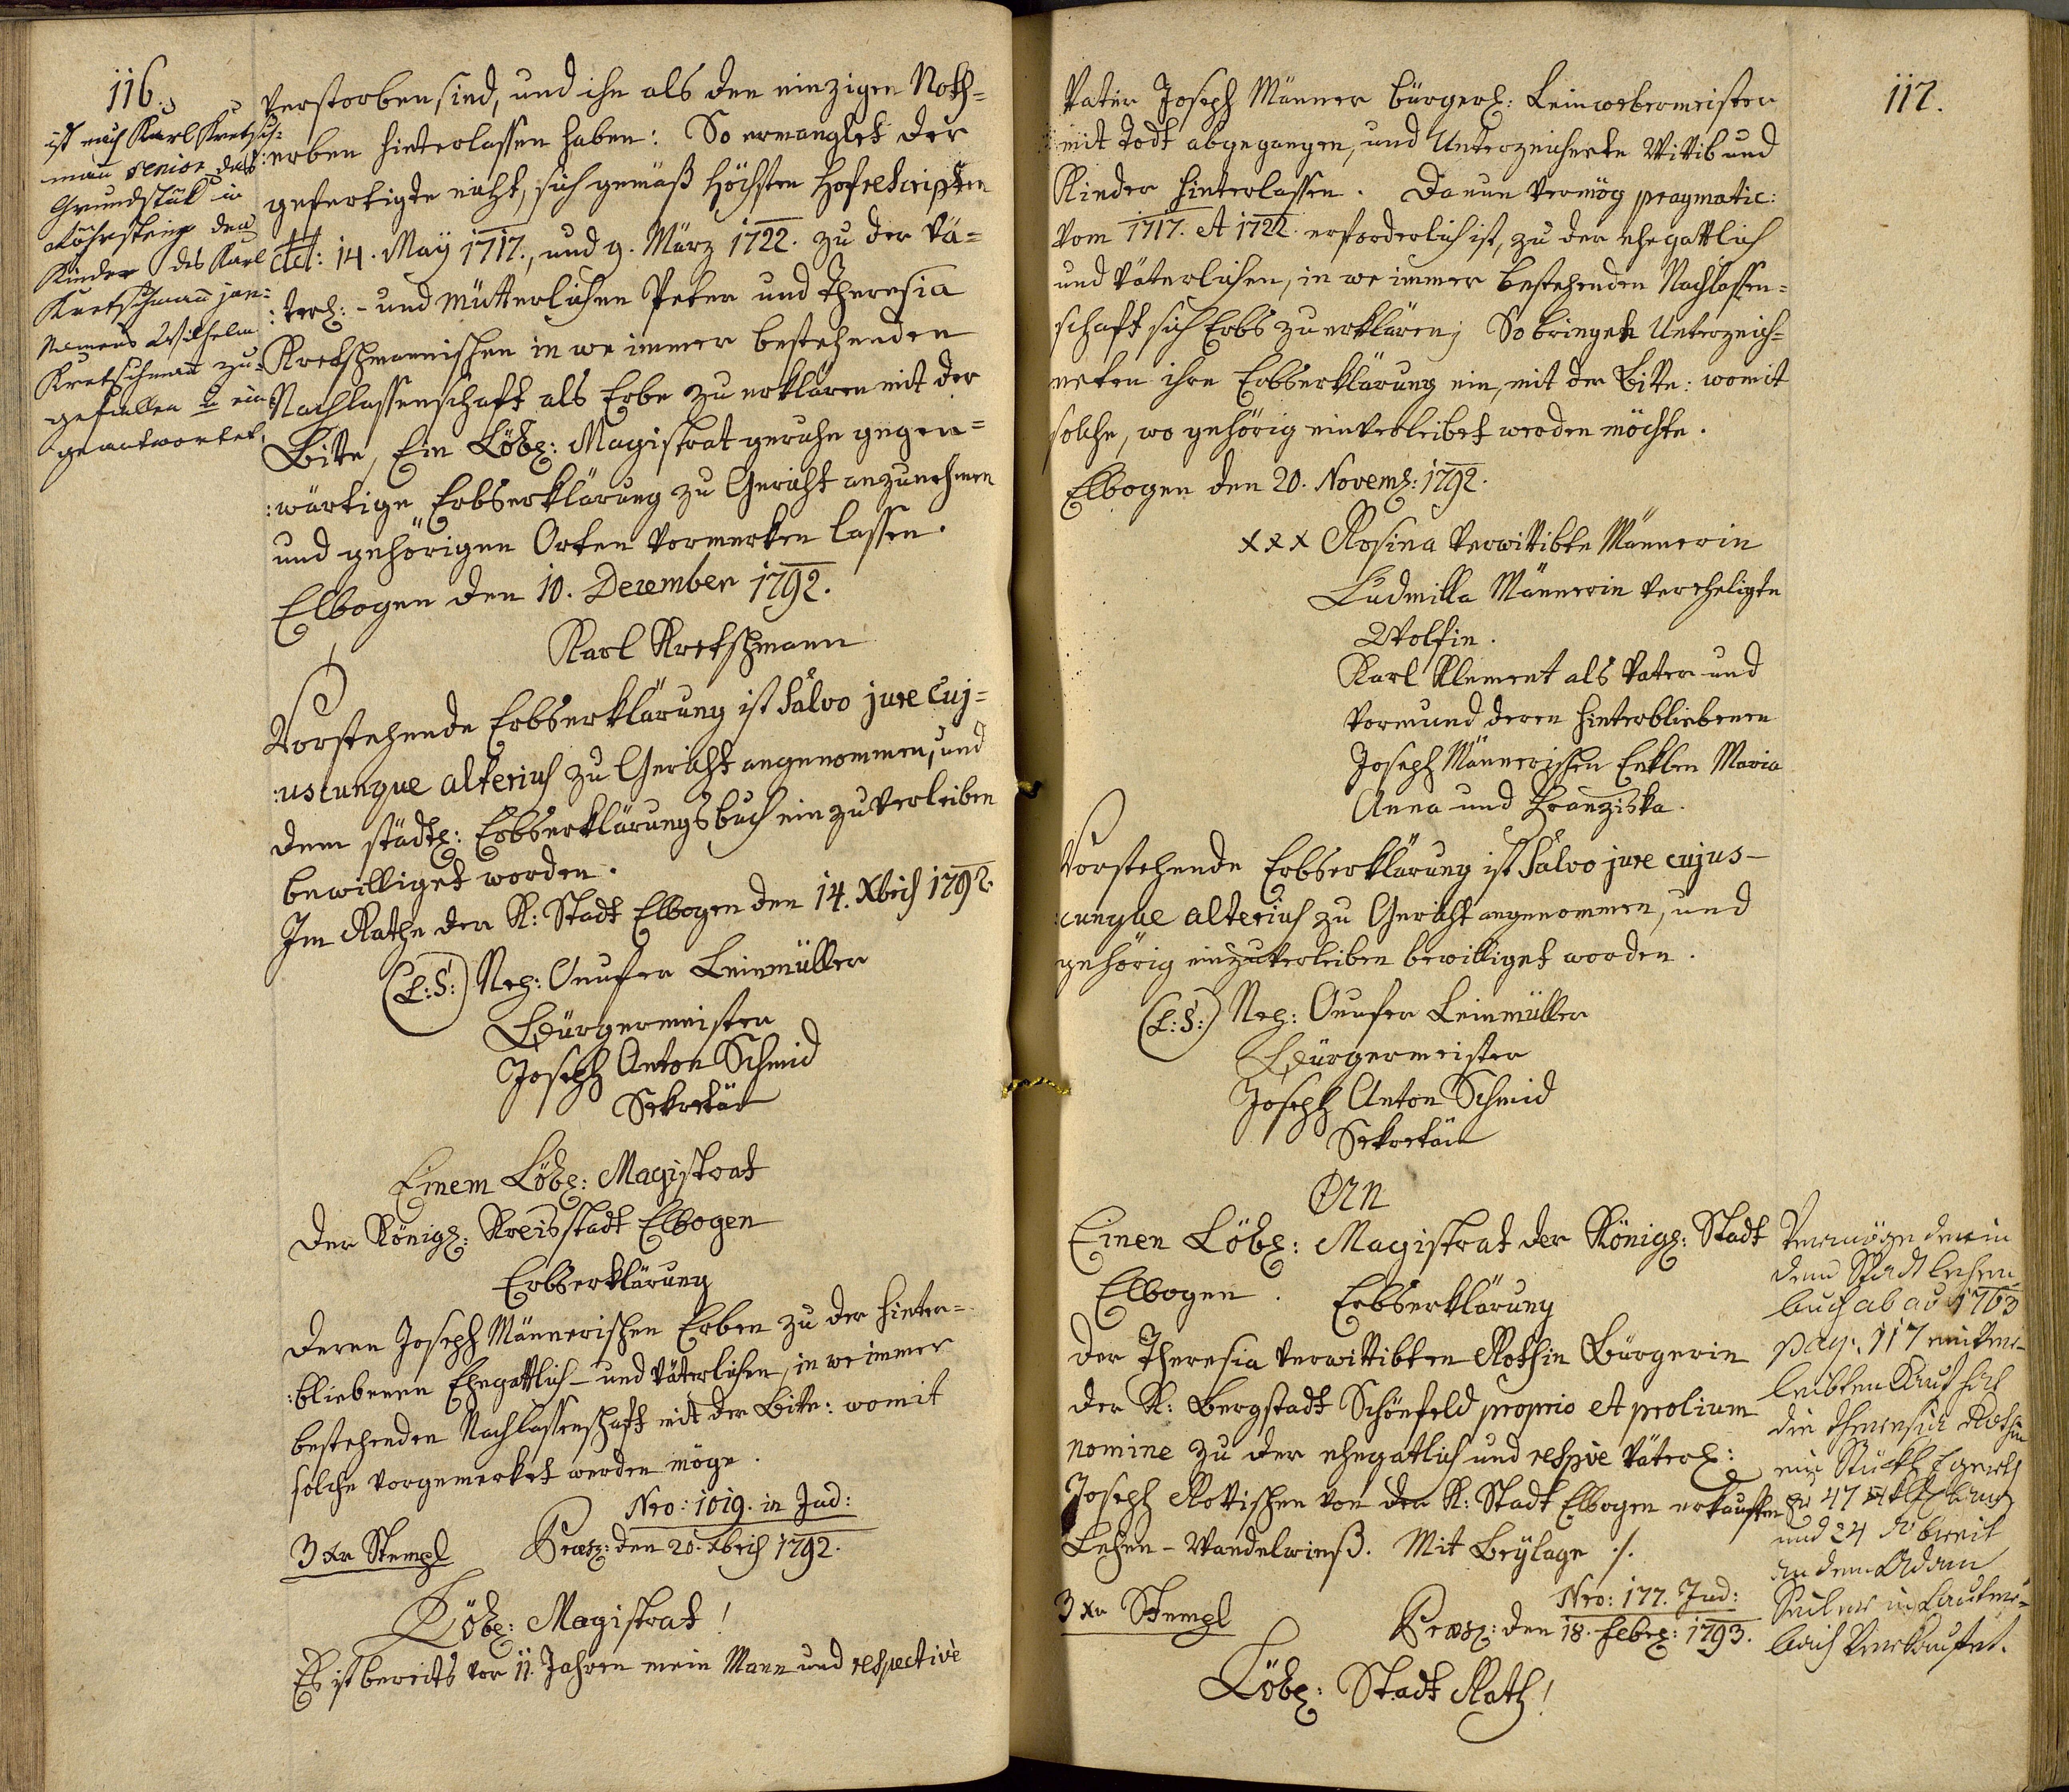 116.
ist nach Karl Kretsch=
man senior das
Grundstük in
den
Kinder des Karl
Kretschmann jun:
Namens Wilhelm
Kretschmann zu=
gefallen u ein
geantwortet.
verstorben sind, und ihn als den einzigen Noth=
:erben hinterlassen haben: So ermanglet der
gefertigte nicht, sich gemäß höchsten Hofrescripten
dd: 14. May 1717., und 9. März 1722. zu der Vä=
:terl: - und mütterlichen Peter und Theresia
Kretschmannischen in we immer bestehenden
Nachlassenschaft als Erbe zu erklären mit der
Bitte, Ein Löbl: Magistrat geruhe gegen=
:wärtige Erbserklärung zu Gericht anzunehmen
und gehörigen Orten vormerken lassen.
Elbogen den 10. Dezember 1792.
Karl Kretschmann
Vorstehende Erbserklärung ist salvo jure cuj=
:uscunque alterius zu Gericht angenommen, und
dem städtl: Erbserklärungsbuch einzuverleiben
bewilliget worden.
Im Rathe der K: Stadt Elbogen den 14. Xbris 1792.
(L:S:) Nep: Onufer Leinmüller
Bürgermeister
Joseph Anton Schmid
Sekretär
Einem Löbl: Magistrat
der Königl: Kreisstadt Elbogen
Erbserklärung
deren Joseph Männerischen Erben zu der hinter=
:bliebenen Ehegattlich- und väterlichen, in we immer
bestehenden Nachlassenschaft mit der Bitte: womit
solche vorgemerket werden möge.
Nro: 1019. in Jud:
3 xr Stempl Præs: den 20. Xbris 1792.
Löbl: Magistrat!
Es ist bereits vor 11. Jahren mein Mann und respective
117.
Vater Joseph Männer bürgerl: Leinwebermeister
mit Todt abgegangen, und Unterzeichnete Wittib und
Kinder hinterlassen. Da nun vermög pragmatic:
vom 1717. et 1722. erforderlich ist, zu der ehegattlich
und väterlichen, in we immer bestehenden Nachlassen=
schaft sich Erbs zu erklären; So bringen Unterzeich=
neten ihre Erbserklärung ein, mit der Bitte: womit
solche, wo gehörig einverleibet werden möchte.
Elbogen den 20. Novemb: 1792.
xxx Rosina verwittibte Männerin
Ludmilla Männerin verehligte
Wolfin.
Karl Klement als Vater und
Vormund deren hinterbliebenen
Joseph Männerischen Enklen Maria
Anna und Franziska.
Vorstehende Erbserklärung ist salvo jure cujus-
:cunque alterius zu Gericht angenommen, und
gehörig einzuverleiben bewilliget worden.
(L:S:) Nep: Onufer Leinmüller
Bürgermeister
Joseph Anton Schmid
Sekretär
An
Einen Löbl: Magistrat der Königl: Stadt
Elbogen. Erbserklärung
der Theresia verwittibten Rothin Bürgerin
der K: Bergstadt Schönfeld proprio et prolium
nomine zu der ehegattlich und respve väterl:
Joseph Rottischen von der K: Stadt Elbogen erkauften
Lehen- Wandelwieß. Mit Beylage ./.
Nro: 177. Jud:
3 xr Stempl Præs: den 18. Febr: 1793.
Löbl: Stadt Rath!
Vermöge der in
dem Stadt Lehen
buch ab ao 1763
pag: 117 einver-
leibten Kauf hat
die Theresia Rothin
ein Stückl
zu 47
und 24 breit
an den Adam
in Lauter=
bach Verkaufet.